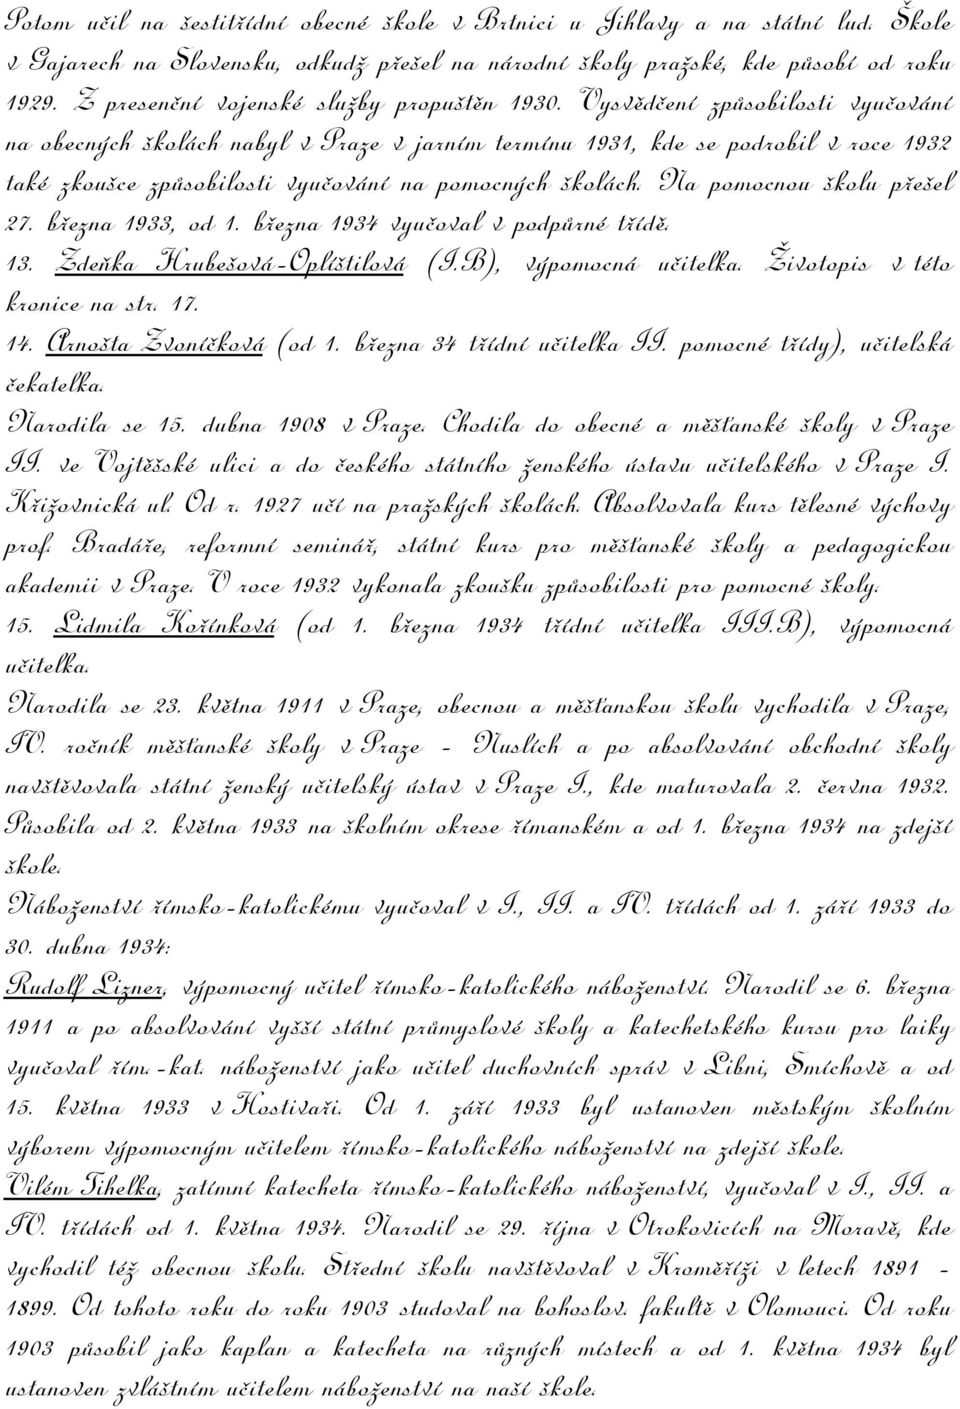 Potom učil na šestitřídní obecné škole v Brtnici u Jihlavy a na státní lud. Škole
v Gajarech na Slovensku, odkudž přešel na národní školy pražské, kde působí od roku
1929. Z presenční vojenské služby propuštěn 1930. Vysvědčení způsobilosti vyučování
na obecných školách nabyl v Praze v jarním termínu 1931, kde se podrobil v roce 1932
také zkoušce způsobilosti vyučování na pomocných školách. Na pomocnou školu přešel
27. března 1933, od 1. března 1934 vyučoval v podpůrné třídě.
13. Zdeňka Hrubešová-Oplíštilová (I.B), výpomocná učitelka. Životopis v této
kronice na str. 17.
14. Arnošta Zvoníčková (od 1. března 34 třídní učitelka II. pomocné třídy), učitelská
čekatelka.
Narodila se 15. dubna 1908 v Praze. Chodila do obecné a měšťanské školy v Praze
II. ve Vojtěšské ulici a do českého státního ženského ústavu učitelského v Praze I.
Křižovnická ul. Od r. 1927 učí na pražských školách. Absolvovala kurs tělesné výchovy
prof. Bradáře, reformní seminář, státní kurs pro měšťanské školy a pedagogickou
akademii v Praze. V roce 1932 vykonala zkoušku způsobilosti pro pomocné školy.
15. Lidmila Kořínková (od 1. března 1934 třídní učitelka III.B), výpomocná
učitelka.
Narodila se 23. května 1911 v Praze, obecnou a měšťanskou školu vychodila v Praze,
IV. ročník měšťanské školy v Praze - Nuslích a po absolvování obchodní školy
navštěvovala státní ženský učitelský ústav v Praze I., kde maturovala 2. června 1932.
Působila od 2. května 1933 na školním okrese římanském a od 1. března 1934 na zdejší
škole.
Náboženství římsko-katolickému vyučoval v I., II. a IV. třídách od 1. září 1933 do
30. dubna 1934:
Rudolf Lizner, výpomocný učitel římsko-katolického náboženství. Narodil se 6. března
1911 a po absolvování vyšší státní průmyslové školy a katechetského kursu pro laiky
vyučoval řím.-kat. náboženství jako učitel duchovních správ v Libni, Smíchově a od
15. května 1933 v Hostivaři. Od 1. září 1933 byl ustanoven městským školním
výborem výpomocným učitelem římsko-katolického náboženství na zdejší škole.
Vilém Tihelka, zatímní katecheta římsko-katolického náboženství, vyučoval v I., II. a
IV. třídách od 1. května 1934. Narodil se 29. října v Otrokovicích na Moravě, kde
vychodil též obecnou školu. Střední školu navštěvoval v Kroměříži v letech 1891 -
1899. Od tohoto roku do roku 1903 studoval na bohoslov. fakultě v Olomouci. Od roku
1903 působil jako kaplan a katecheta na různých místech a od 1. května 1934 byl
ustanoven zvláštním učitelem náboženství na naší škole.